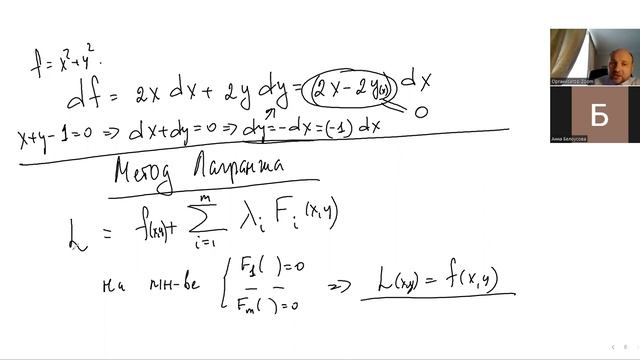 f = x² + y².
df = 2x dx + 2y dy = (2x - 2y(x)) dx
0
x+y-1=0 ⇒ dx+dy=0 ⇒ dy=-dx=(-1) dx
Метод Лагранжа
L = f(x,y) + ∑ᵢ₌₁ᵐ λᵢ Fᵢ (x,y)
на мн-ве { F₁( )=0
— —
Fₘ( )=0 ⇒ L(x,y) = f(x,y)
Организатор Zoom
Б
Анна Белоусова
8